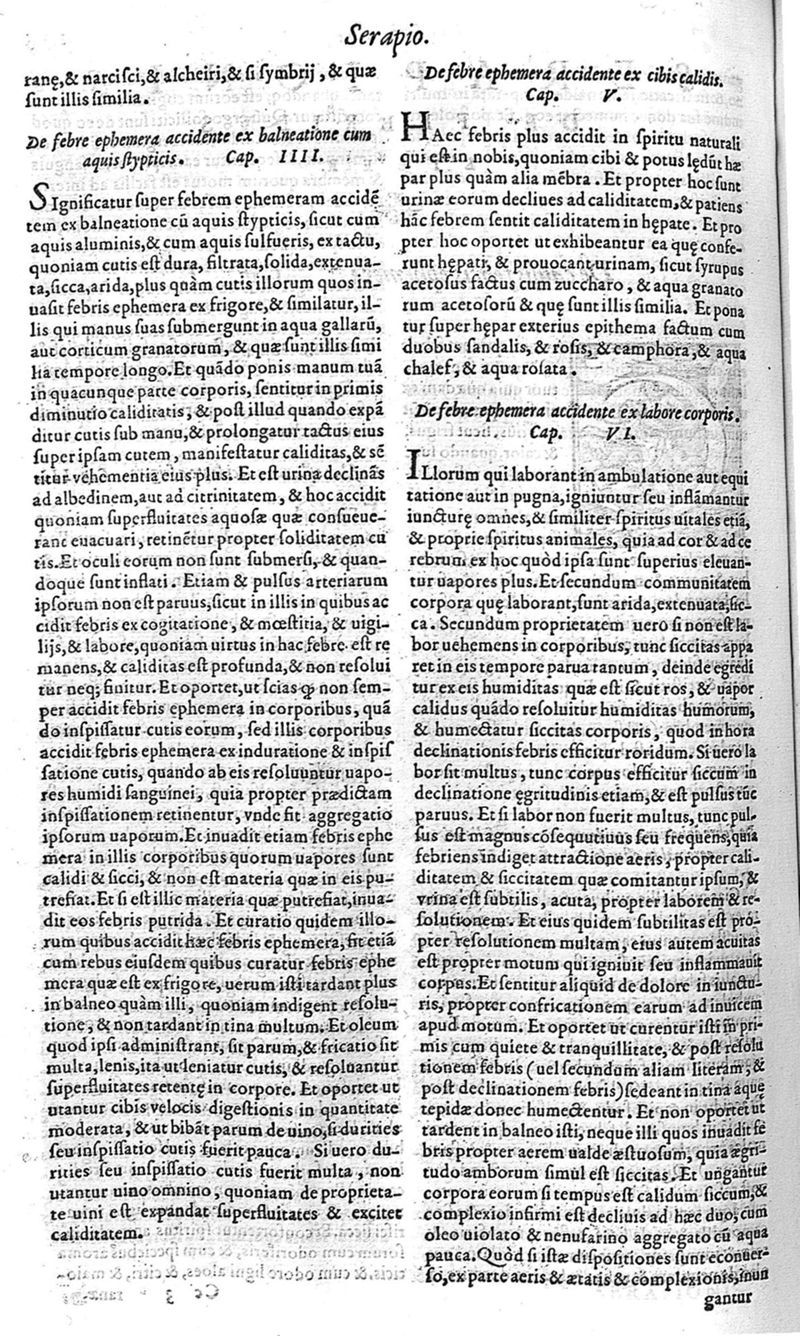 Serapio.
ranę,& narcisci,& alcheiri,& si symbrij, & quæ
sunt illis similia.
De febre ephemera accidente ex balneatione cum
aquis stypticis. Cap. IIII.
SIgnificatur super febrem ephemeram accidē
tem ex balneatione cū aquis stypticis, sicut cum
aquis aluminis,& cum aquis sulfureis, ex tactu,
quoniam cutis est dura, filtrata, solida, extenua-
ta, sicca, arida, plus quàm cutis illorum quos in-
uasit febris ephemera ex frigore,& similatur, il-
lis qui manus suas submergunt in aqua gallarū,
aut corticum granatorum, & quæ sunt illis simi
lia tempore longo. Et quādo ponis manum tuā
in quacunque parte corporis, sentitur in primis
diminutio caliditatis, & post illud quando expā
ditur cutis sub manu,& prolongatur tactus eius
super ipsam cutem, manifestatur caliditas,& sē
titur vehementia eius plus. Et est urina declinās
ad albedinem, aut ad citrinitatem, & hoc accidit
quoniam superfluitates aquosæ quæ consueue-
rant euacuari, retinētur propter soliditatem cu
tis. Et oculi eorum non sunt submersi, & quan-
doque sunt inflati. Etiam & pulsus arteriarum
ipsorum non est paruus, sicut in illis in quibus ac
cidit febris ex cogitatione, & mœstitia, & uigi-
lijs,& labore, quoniam uirtus in hac febre est re
manens,& caliditas est profunda,& non resolui
tur neq; finitur. Et oportet, ut scias ꝙ non sem-
per accidit febris ephemera in corporibus, quā
do inspissatur cutis eorum, sed illis corporibus
accidit febris ephemera ex induratione & inspis
satione cutis, quando ab eis resoluuntur uapo-
res humidi sanguinei, quia propter prædictam
inspissationem retinentur, vnde fit aggregatio
ipsorum uaporum. Et inuadit etiam febris ephe
mera in illis corporibus quorum uapores sunt
calidi & sicci, & non est materia quæ in eis pu-
trefiat. Et si est illic materia quæ putrefiat, inua-
dit eos febris putrida. Et curatio quidem illo-
rum quibus accidit hæc febris ephemera, fit etiā
cum rebus eiusdem quibus curatur febris ephe
mera quæ est ex frigore, uerum isti tardant plus
in balneo quàm illi, quoniam indigent resolu-
tione, & non tardant in tina multum. Et oleum
quod ipsi administrant, sit parum,& fricatio sit
multa, lenis, ita ut leniatur cutis, & resoluantur
superfluitates retentę in corpore. Et oportet ut
utantur cibis velocis digestionis in quantitate
moderata, & ut bibāt parum de uino, si durities
seu inspissatio cutis fuerit pauca. Si uero du-
rities seu inspissatio cutis fuerit multa, non
utantur uino omnino, quoniam de proprieta-
te uini est expandat superfluitates & excitet
caliditatem.
Cc 3
De febre ephemera accidente ex cibis calidis.
Cap. V.
HAec febris plus accidit in spiritu naturali
qui est in nobis, quoniam cibi & potus lędūt hæ
par plus quàm alia mēbra. Et propter hoc sunt
urinæ eorum decliues ad caliditatem,& patiens
hāc febrem sentit caliditatem in hępate. Et pro
pter hoc oportet ut exhibeantur ea quę confe-
runt hępati, & prouocant urinam, sicut syrupus
acetosus factus cum zuccharo, & aqua granato
rum acetosorū & quę sunt illis similia. Et pona
tur super hępar exterius epithema factum cum
duobus sandalis, & rosis, & camphora, & aqua
chalef, & aqua rosata.
De febre ephemera accidente ex labore corporis.
Cap. VI.
ILlorum qui laborant in ambulatione aut equi
tatione aut in pugna, igniuntur seu inflāmantur
iuncturę omnes,& similiter spiritus uitales etiā,
& proprie spiritus animales, quia ad cor & ad ce
rebrum ex hoc quòd ipsa sunt superius eleuan-
tur uapores plus. Et secundum communitatem
corpora quę laborant, sunt arida, extenuata, sic-
ca. Secundum proprietatem uero si non est la-
bor uehemens in corporibus, tunc siccitas appa
ret in eis tempore parua tantum, deinde egredi
tur ex eis humiditas quæ est sicut ros, & uapor
calidus quādo resoluitur humiditas humorum,
& humectatur siccitas corporis, quod in hora
declinationis febris efficitur roridum. Si uero la
bor sit multus, tunc corpus efficitur siccum in
declinatione ęgritudinis etiam,& est pulsus tūc
paruus. Et si labor non fuerit multus, tunc pul-
sus est magnus cōsequutiuus seu frequens, quia
febriens indiget attractione aeris, propter cali-
ditatem & siccitatem quæ comitantur ipsum, &
vrina est subtilis, acuta, propter laborem & re-
solutionem. Et eius quidem subtilitas est pro-
pter resolutionem multam, eius autem acuitas
est propter motum qui igniuit seu inflammauit
corpus. Et sentitur aliquid de dolore in iunctu-
ris, propter confricationem earum ad inuicem
apud motum. Et oportet ut curentur isti in pri-
mis cum quiete & tranquillitate, & post resolu
tionem febris (uel secundum aliam literam, &
post declinationem febris) sedeant in tina aquę
tepidæ donec humectentur. Et non oportet ut
tardent in balneo isti, neque illi quos inuadit fe
bris propter aerem ualde æstuosum, quia ægri-
tudo amborum simul est siccitas. Et ungantur
corpora eorum si tempus est calidum siccum,&
complexio infirmi est decliuis ad hæc duo, cum
oleo uiolato & nenufarino aggregato cū aqua
pauca. Quòd si istæ dispositiones sunt econuer-
so, ex parte aeris & ætatis & complexionis, inun
gantur